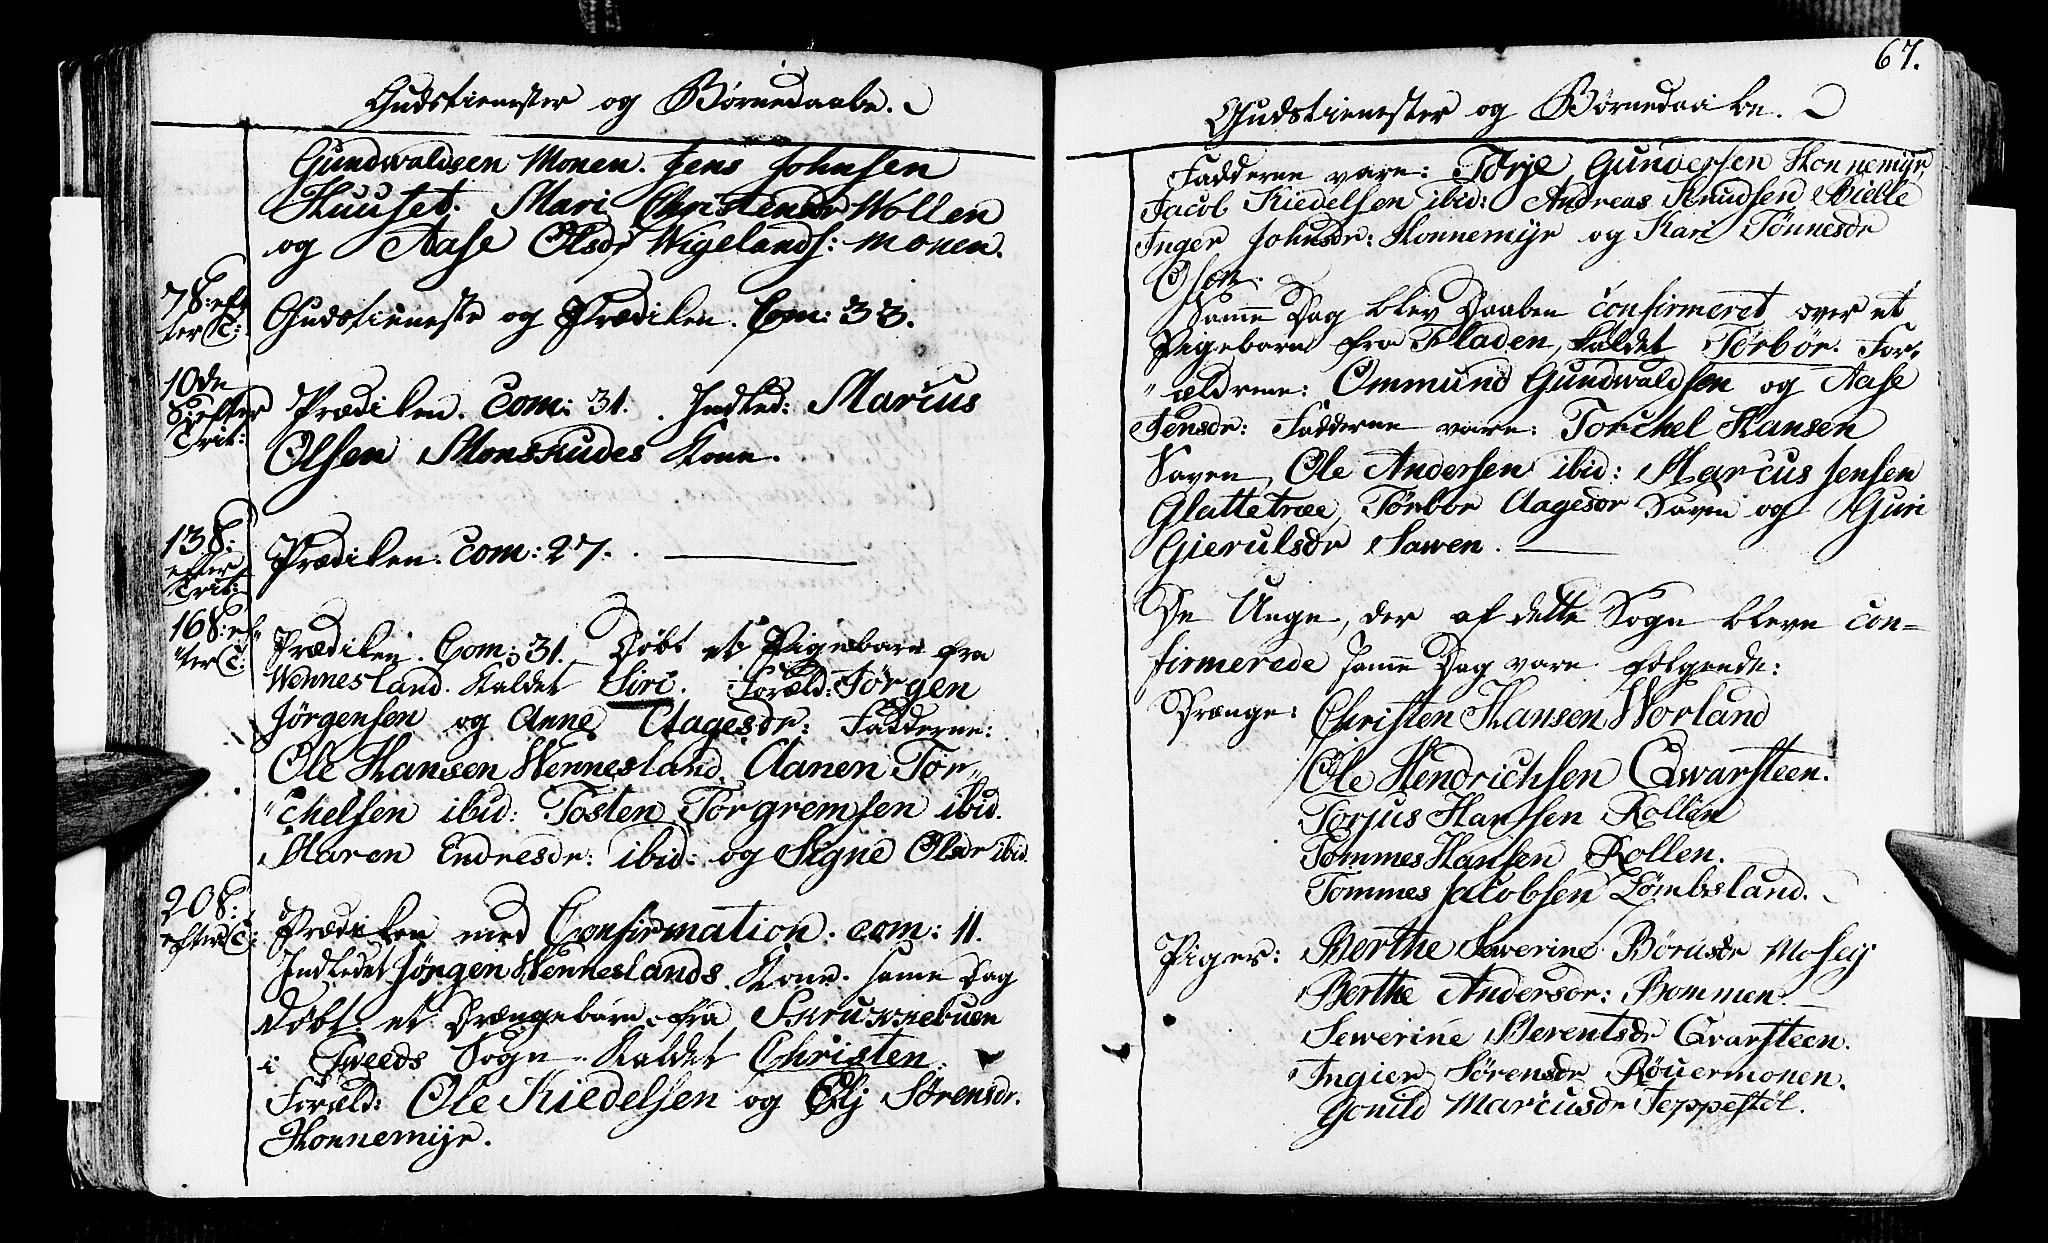 Gudstienester og Børnedaabe.
Gundwaldsen Monen. Jens Johnsen
Huuset. Mari Christensdr Wollen
og Aase Olsdr Wigelands: monen.
7 S: eff
ter T:
Gudstieneste og Prædiken. Com: 33.
10de
S: efter
Trit:
Prædiken. Com: 31. Indled: Marcus
Olsen Monskudes Kone.
13 S:
efter
Trit:
Prædiken. Com: 27.
16 S: ef
ter T:
Prædiken. Com: 31. Døbt et Pigebarn fra
Wennesland. Kaldet Siri. Foræld: Jørgen
Jørgensen og Anne Aagesdr: Fadderne:
Ole Hansen Wennesland, Aanen Tor-
chelsen ibid: Tosten Torgremsen ibid.
Maren Endresdr: ibid: og Signe Olsdr ibid.
20 S:
efter T:
Prædiken med Confirmation. com: 11.
Indledet Jørgen Wenneslands Kone. Same Dag
døbt et Drængebarn fra Skrukkebuen
i Tweeds Sogn. Kaldet Christen.
Foræld: Ole Kiedelsen og Elj Sørensdr.
Honnemijr.
67.
Gudstienester og Børnedaabe.
Fadderne vare: Torje Gunversen Honnemijr,
Jacob Kiedelsen ibid: Andreas Knudsen Bielle
Inger Johnsdr: Honnemijr og Kari Tönnesdr
Osen.
Same Dag blev Daaben confirmeret over et
Pigebarn fra Fladen, kaldet Torbor. For-
ældrene: Ommund Gundwaldsen og Aase
Jensdr: Fadderne vare: Torchel Hansen
Saven, Ole Andersen ibid: Marcus Jensen
Glattetræe, Torbor Aagesdr Saven og Guri
Gierulsdr Sawen.
De Unge, der af dette Sogn bleve con-
firmerede same Dag vare følgende:
Drænge: Christen Hansen Worland
Ole Hendrichsen Qwarsteen.
Torjus Hansen Rollen
Tommes Hansen Rollen.
Tommes Jacobsen Lömbsland.
Piger: Berthe Sewerine Börusdr Mosey
Berthe Andersdr: Bommen.
Sewerine Berentsdr Qvarsteen.
Ingier Sörensdr Röuermonen.
Gonild Marcusdr Jeppestöl.